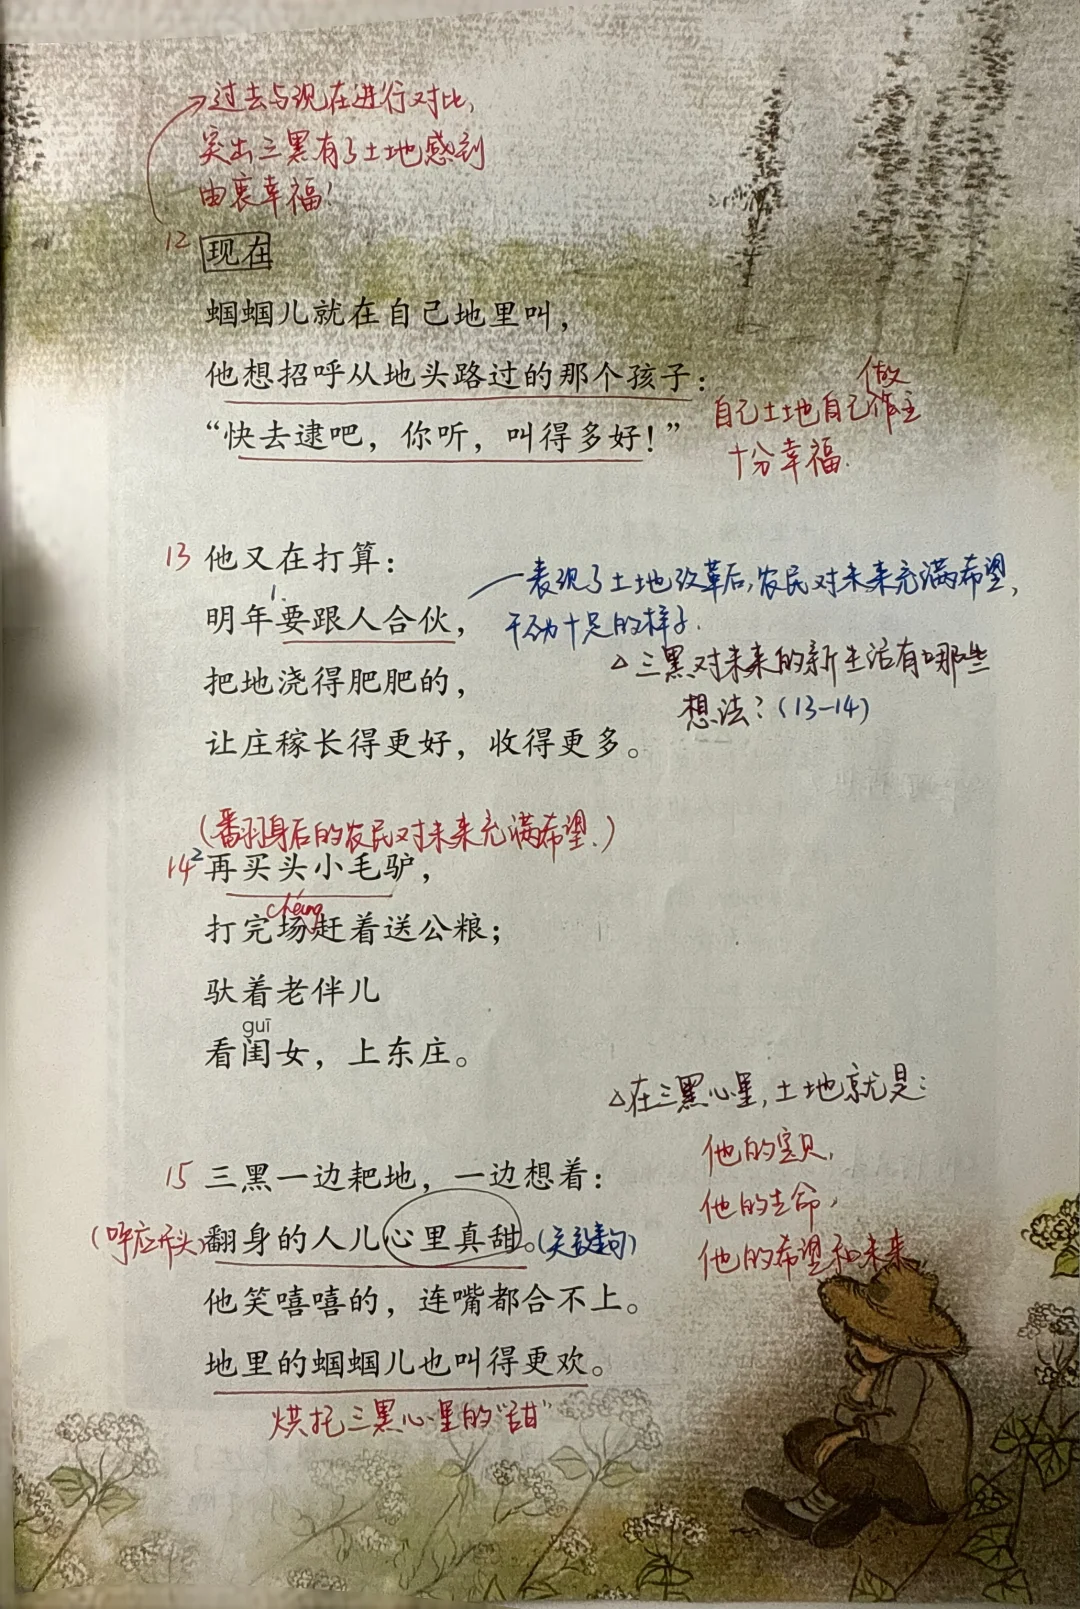 过去与现在进行对比，
突出三黑有了土地感到
由衷幸福！
12 现在
蝈蝈儿就在自己地里叫，
他想招呼从地头路过的那个孩子：
“快去逮吧，你听，叫得多好！”
做
自己土地自己作主
十分幸福.
13 他又在打算：
1.
明年要跟人合伙，
把地浇得肥肥的，
让庄稼长得更好，收得更多。
表现了土地改革后，农民对未来充满希望，
干劲十足的样子.
△三黑对未来的新生活有哪些
想法？(13-14)
(翻身后的农民对未来充满希望.)
14 2 再买头小毛驴，
cháng
打完场赶着送公粮；
驮着老伴儿
guī
看闺女，上东庄。
△在三黑心里，土地就是：
他的宝贝，
他的生命，
他的希望和未来
15 三黑一边耙地，一边想着：
(呼应开头)翻身的人儿心里真甜。(关键句)
他笑嘻嘻的，连嘴都合不上。
地里的蝈蝈儿也叫得更欢。
烘托三黑心里的“甜”